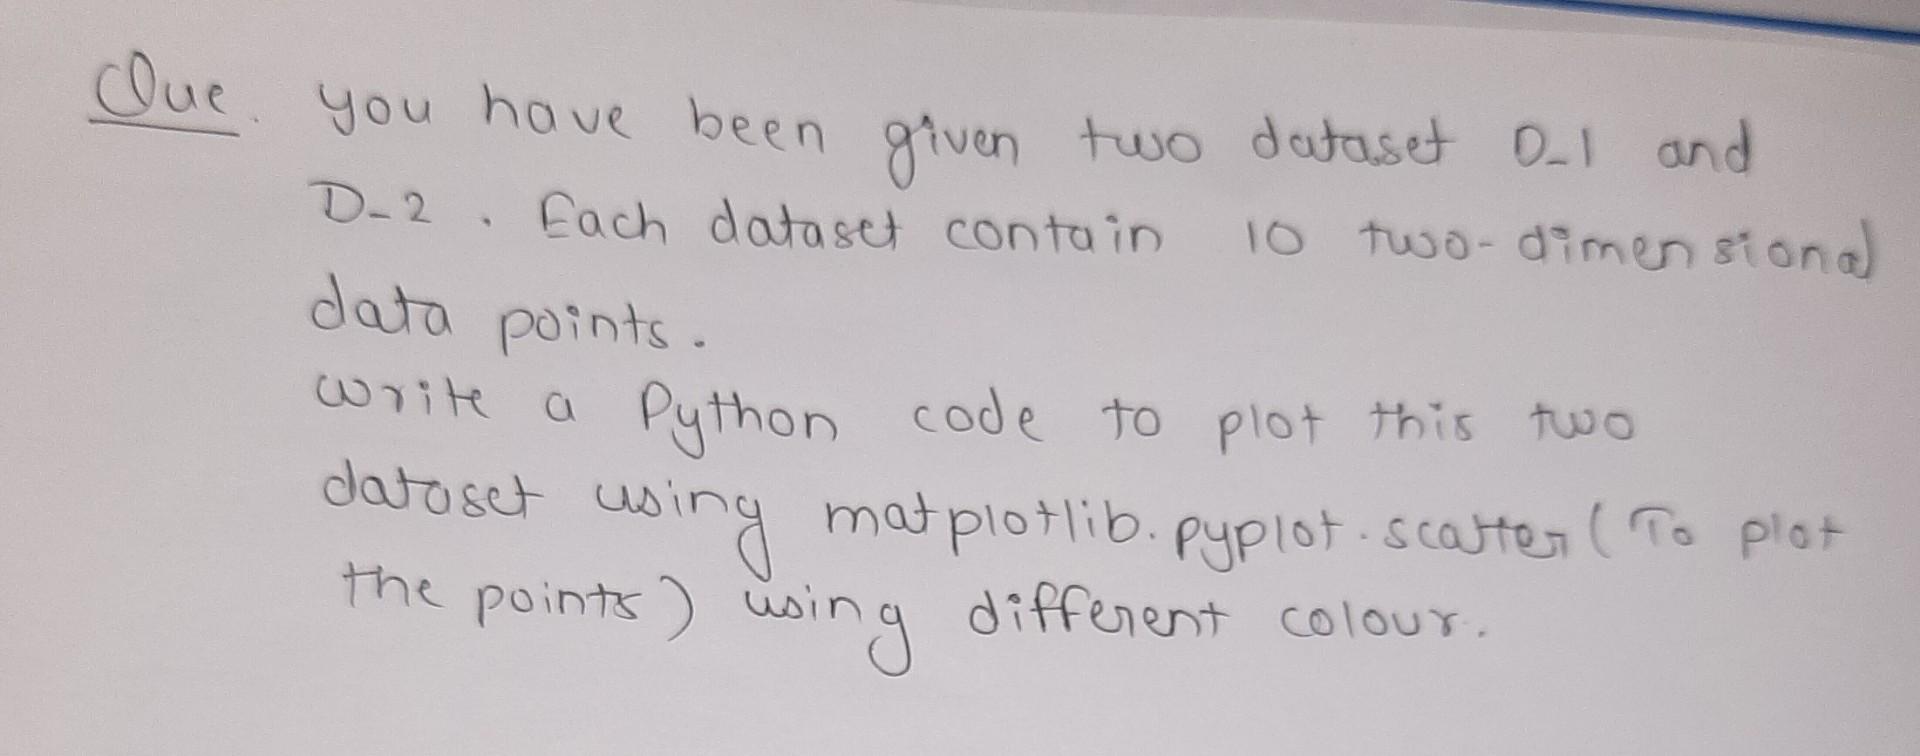 Que. you have been given two dataset D_1 and
D_2. Each dataset contain 10 two-dimensional
data points.
write a Python code to plot this two
dataset using matplotlib.pyplot.scatter (To plot
the points) using different colour.